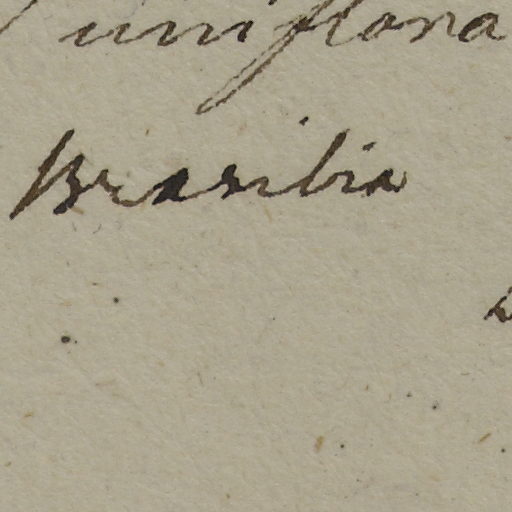 uniflora
Brasilia